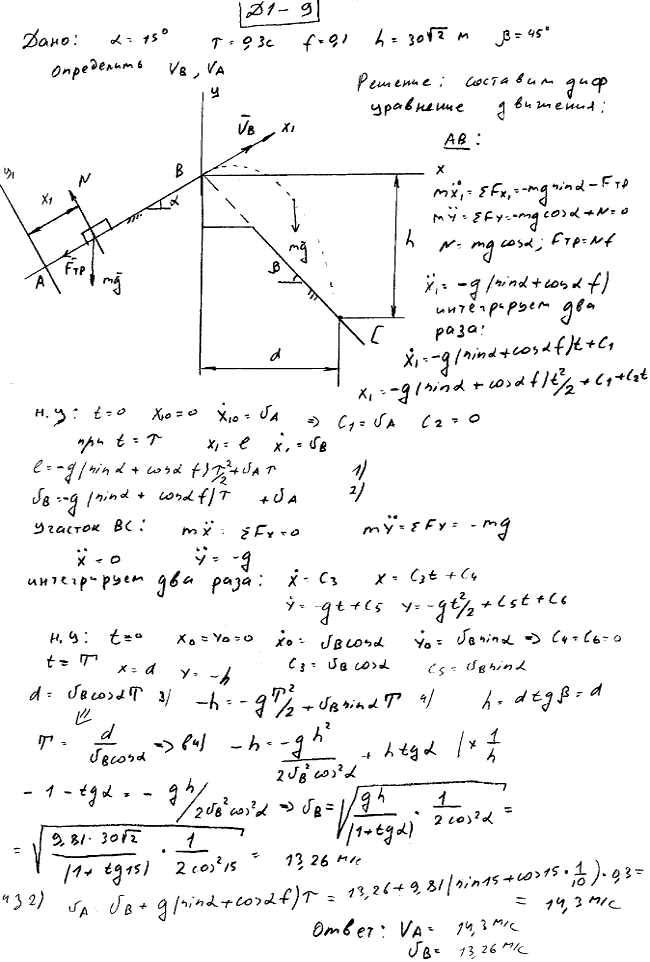 Д1-9
Дано: α = 15° τ = 0,3c f = 0,1 h = 30√2 м β = 45°
Определить V_B, V_A
Решение: составим диф
уравнение движения:
AB:
y
V̄_B x₁
B
x
y₁
x₁
N
α
F̄_тр
A
mḡ
mḡ
h
β
C
d
mẍ₁ = ΣFx₁ = -mg sinα - Fтр
mÿ = ΣFy = -mg cosα + N = 0
N = mg cosα; Fтр = Nf
ẍ₁ = -g(sinα + cosα f)
интегрируем два
раза:
ẋ₁ = -g(sinα + cosα f)t + C₁
x₁ = -g(sinα + cosα f)t²/2 + C₁ + C₂t
н.у: t=0 x₁₀=0 ẋ₁₀ = υ_A => C₁ = υ_A C₂ = 0
при t = τ x₁ = ℓ ẋ₁ = υ_B
ℓ = -g(sinα + cosα f)τ²/2 + υ_A τ 1)
υ_B = -g(sinα + cosα f)τ + υ_A 2)
участок BC: mẍ = ΣFx = 0 mÿ = ΣFy = -mg
ẍ = 0 ÿ = -g
интегрируем два раза: ẋ = C₃ x = C₃t + C₄
ẏ = -gt + C₅ y = -gt²/2 + C₅t + C₆
н.у: t=0 x₀ = y₀ = 0 ẋ₀ = υ_B cosα ẏ₀ = υ_B sinα => C₄ = C₆ = 0
t = T x = d y = -h C₃ = υ_B cosα C₅ = υ_B sinα
d = υ_B cosα T 3) -h = -gT²/2 + υ_B sinα T 4) h = d tgβ = d
T = d/(υ_B cosα) => в 4) -h = -gh²/(2υ_B² cos²α) + h tgα | × 1/h
-1 - tgα = -gh/2υ_B² cos²α => υ_B = √(gh/(1+tgα) · 1/(2cos²α)) =
= √(9,81·30√2/(1+tg15) · 1/(2cos²15)) = 13,26 м/с
из 2) υ_A = υ_B + g(sinα + cosα f)τ = 13,26 + 9,81(sin15 + cos15 · 1/10) · 0,3 =
= 14,3 м/с
Ответ: V_A = 14,3 м/с
υ_B = 13,26 м/с